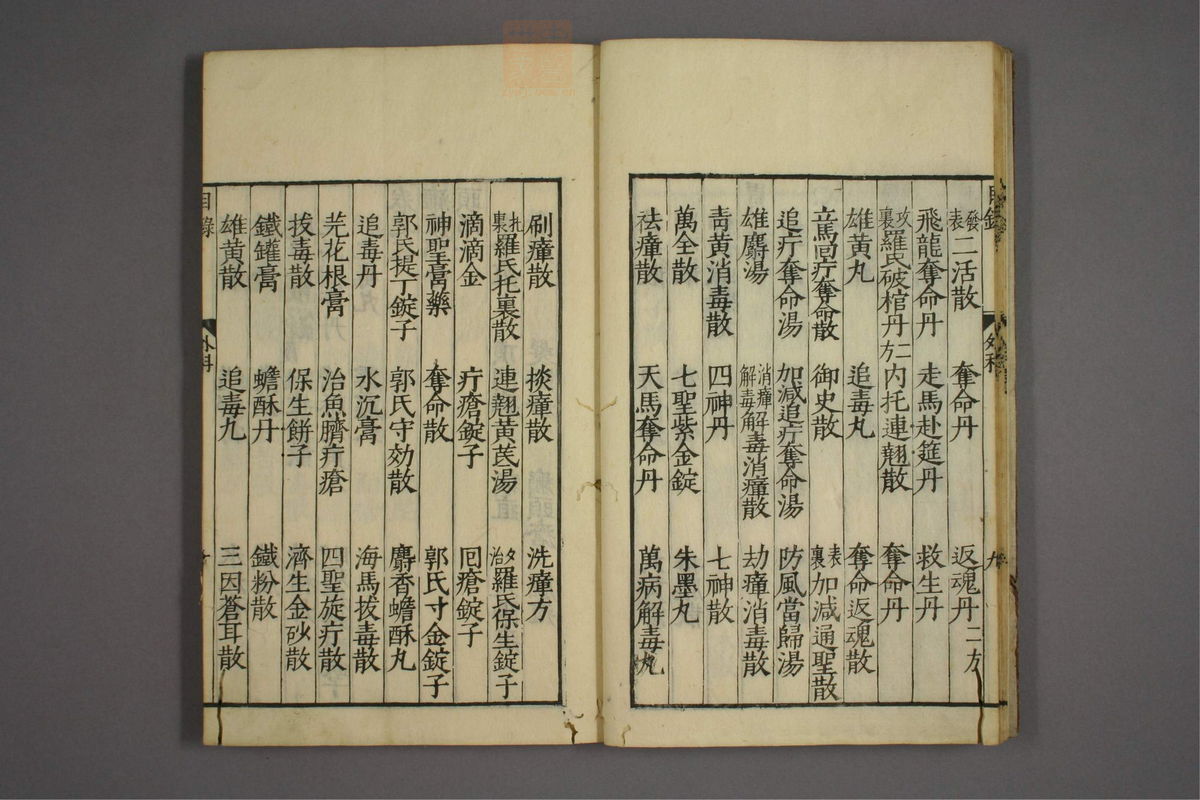 目錄 外科 九
發表二活散 奪命丹 返魂丹二方
飛龍奪命丹 走馬赴筵丹 救生丹
攻裏羅氏破棺丹二方 内托連翹散 奪命丹
雄黃丸 追毒丸 奪命返魂散
立馬回疔奪命散 御史散 表裏加減通聖散
追疔奪命湯 加減追疔奪命湯 防風當歸湯
雄麝湯 消瘴解毒解毒消瘴散 劫瘴消毒散
青黃消毒散 四神丹 七神散
萬全散 七聖紫金錠 朱墨丸
祛瘴散 天馬奪命丹 萬病解毒丸
刷瘴散 掞瘴散 洗瘴方
托裏羅氏托裏散 連翹黃芪湯 夕治羅氏保生錠子
滴滴金 疔瘡錠子 囘瘡錠子
神聖膏藥 奪命散 郭氏寸金錠子
郭氏提丁錠子 郭氏守効散 麝香蟾酥丸
追毒丹 水沉膏 海馬拔毒散
芫花根膏 治魚臍疔瘡 四聖旋疔散
拔毒散 保生餅子 濟生金砂散
鐵罐膏 蟾酥丹 鐵粉散
雄黃散 追毒丸 三因蒼耳散
目錄 外科 十